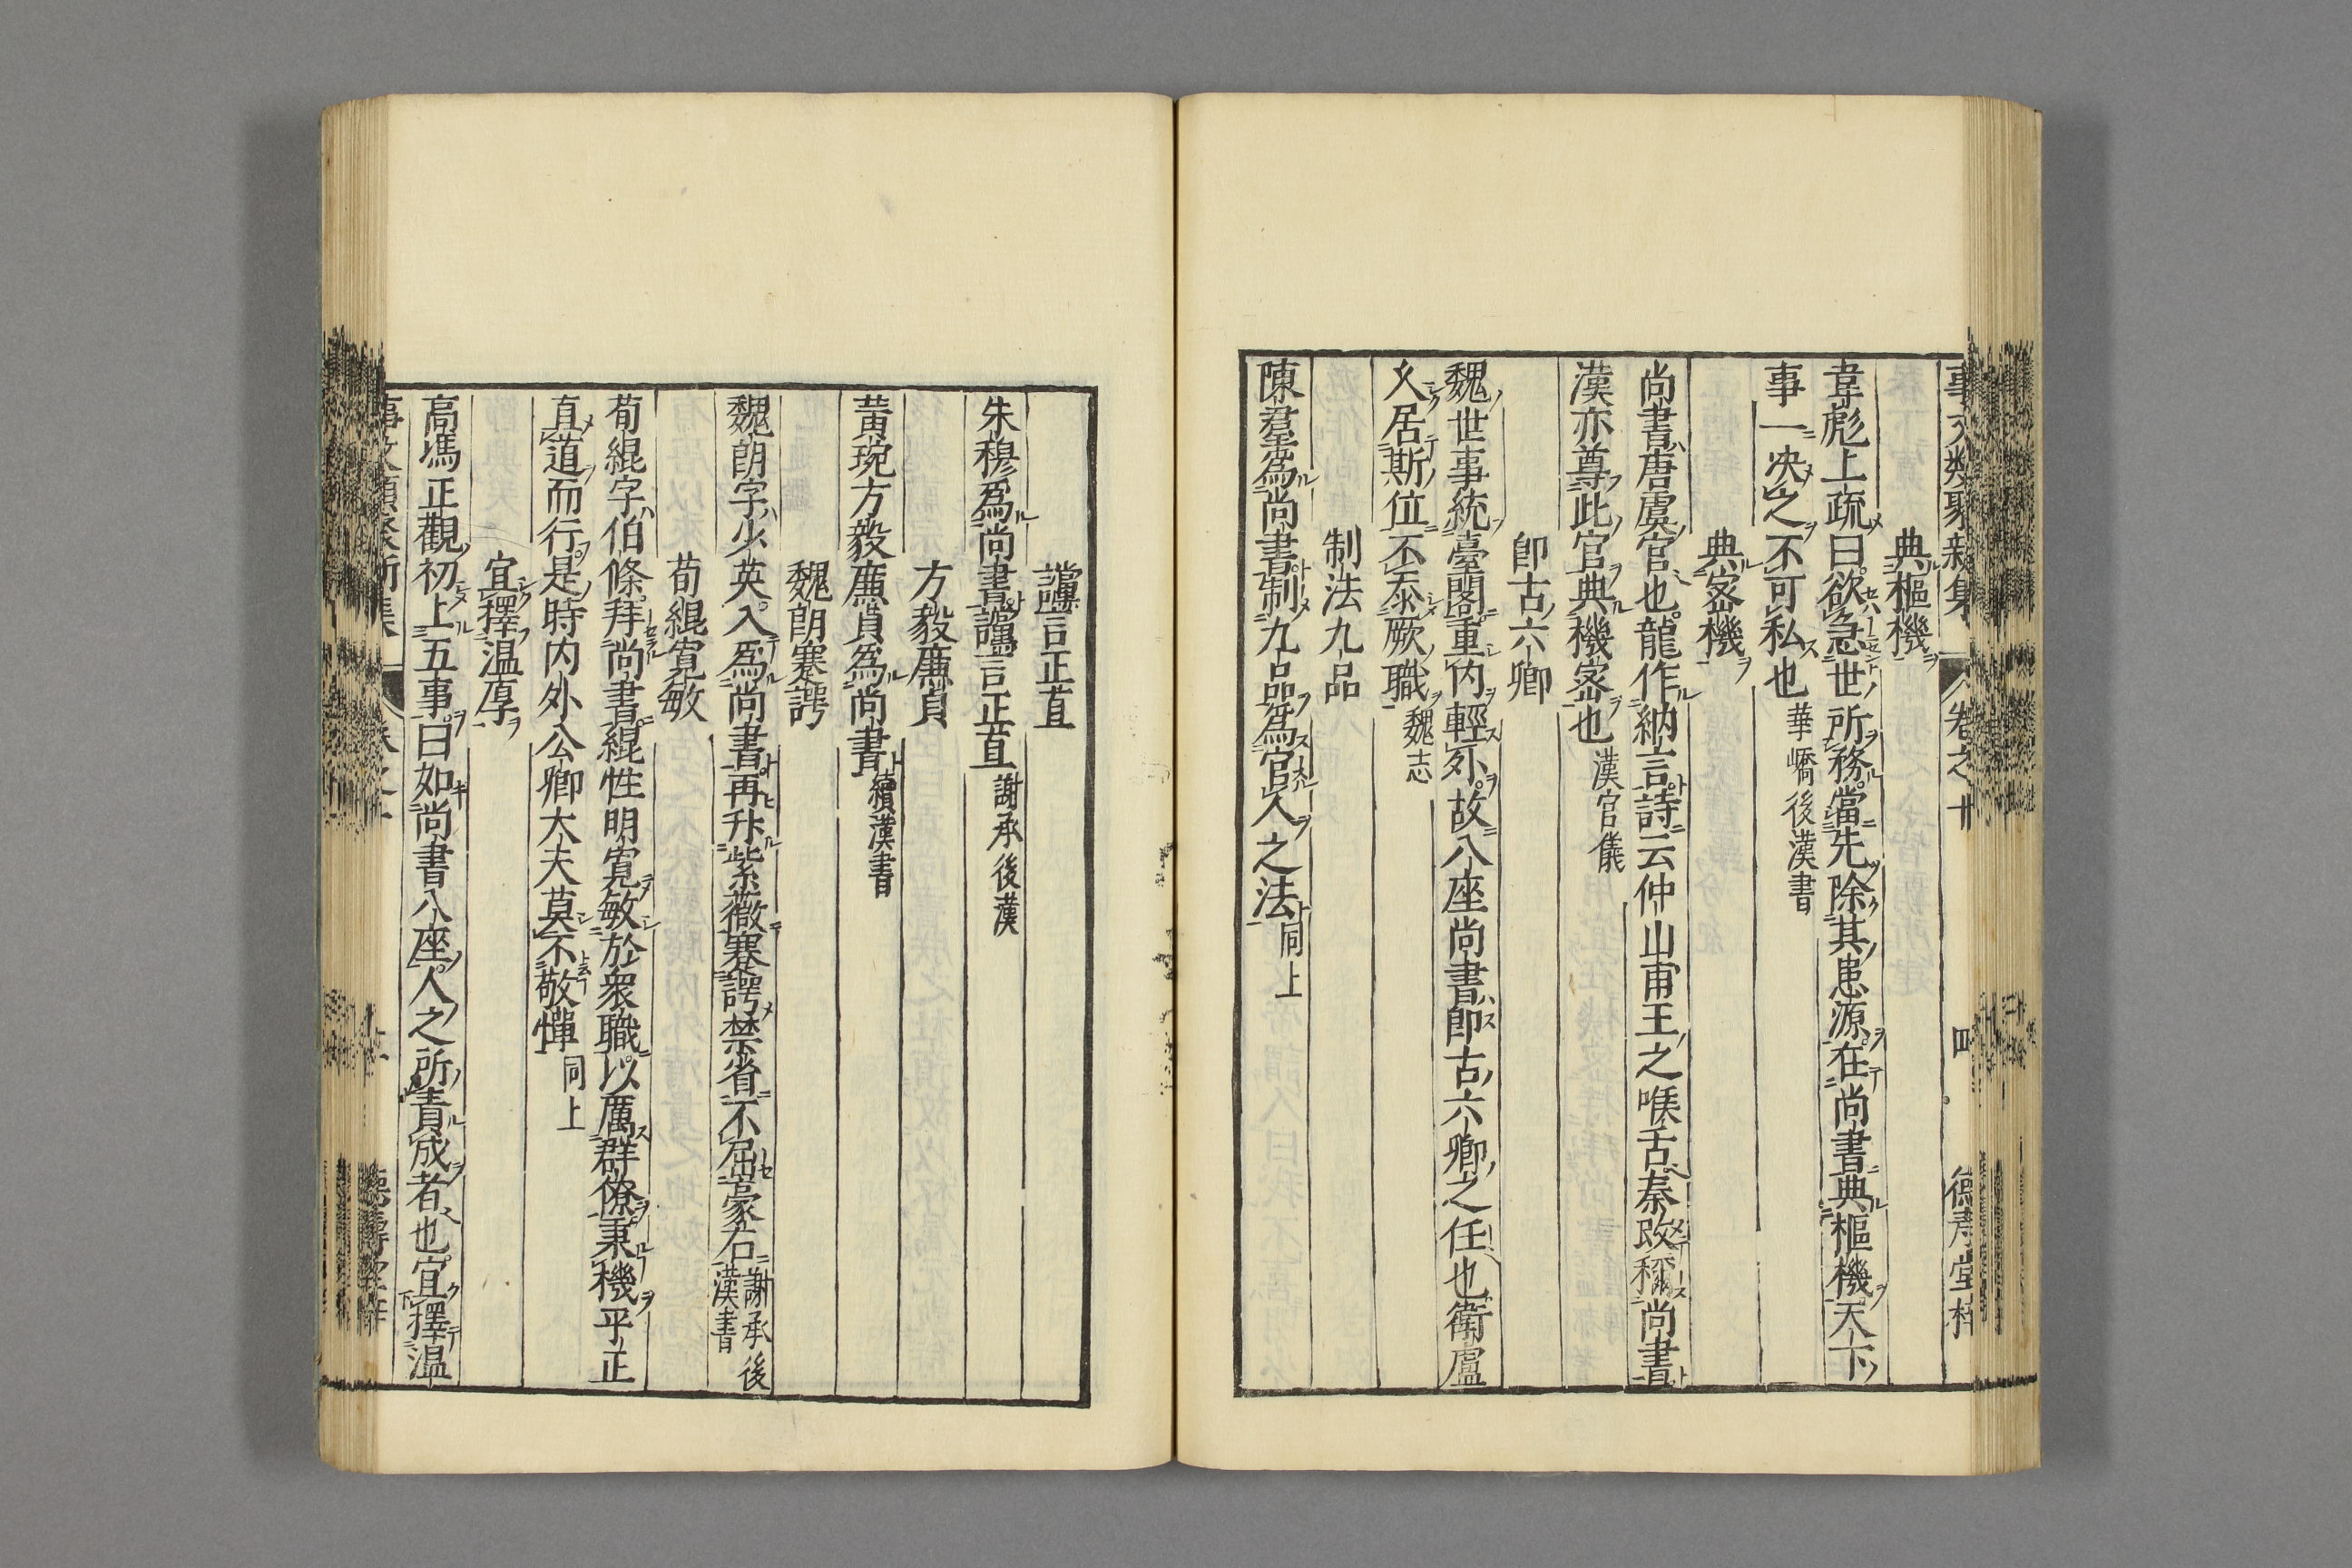 事文類聚新集 卷之十 四 德壽堂梓
典樞機
韋彪上疏曰欲急世所務當先除其患源在尚書典樞機天下
事一决之不可私也 華嶠後漢書
典宻機
尚書唐虞官也龍作納言詩云仲山甫王之喉舌秦改稱尚書
漢亦尊此官典機宻也 漢官儀
卽古六卿
魏世事統臺閣重内輕外故八座尚書卽古六卿之任也衛盧
久居斯位不忝厥職 魏志
制法九品
陳羣爲尚書制九品爲官人之法 同上
讜言正直
朱穆爲尚書讜言正直 謝承後漢
方毅廉貞
黄琬方毅廉貞爲尚書 續漢書
魏朗蹇諤
魏朗字少英入爲尚書再升紫薇蹇諤禁省不屈豪右 謝承後漢書
荀緄寛敏
荀緄字伯條拜尚書緄性明寛敏於衆職以厲群僚秉機平正
直道而行是時内外公卿大夫莫不敬憚 同上
宜擇温厚
高馮正觀初上五事曰如尚書八座人之所責成者也宜擇温
事文類聚新集